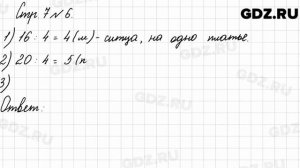 GDZ.RU
Стр 7 № 6.
1) 16 : 4 = 4 (м) - ситца, на одно платье.
2) 20 : 4 = 5 (п
3)
Ответ: